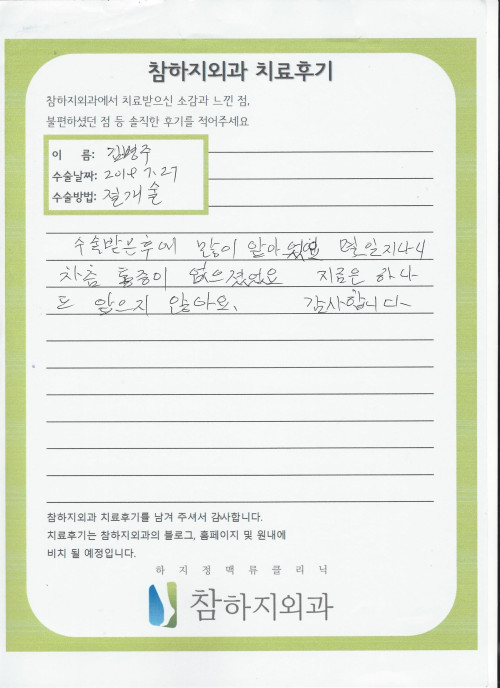 참하지외과 치료후기
참하지외과에서 치료받으신 소감과 느낀 점,
불편하셨던 점 등 솔직한 후기를 적어주세요
이 름: 김병주
수술날짜: 2018 7.27
수술방법: 절개술
수술받은후에 많이 앞아 몇일지나니
차츰 통증이 없으졌었요 지금은 하나
도 앞으지 않아요. 감사합니다~
참하지외과 치료후기를 남겨 주셔서 감사합니다.
치료후기는 참하지외과의 블로그, 홈페이지 및 원내에
비치 될 예정입니다.
하지정맥류클리닉
참하지외과